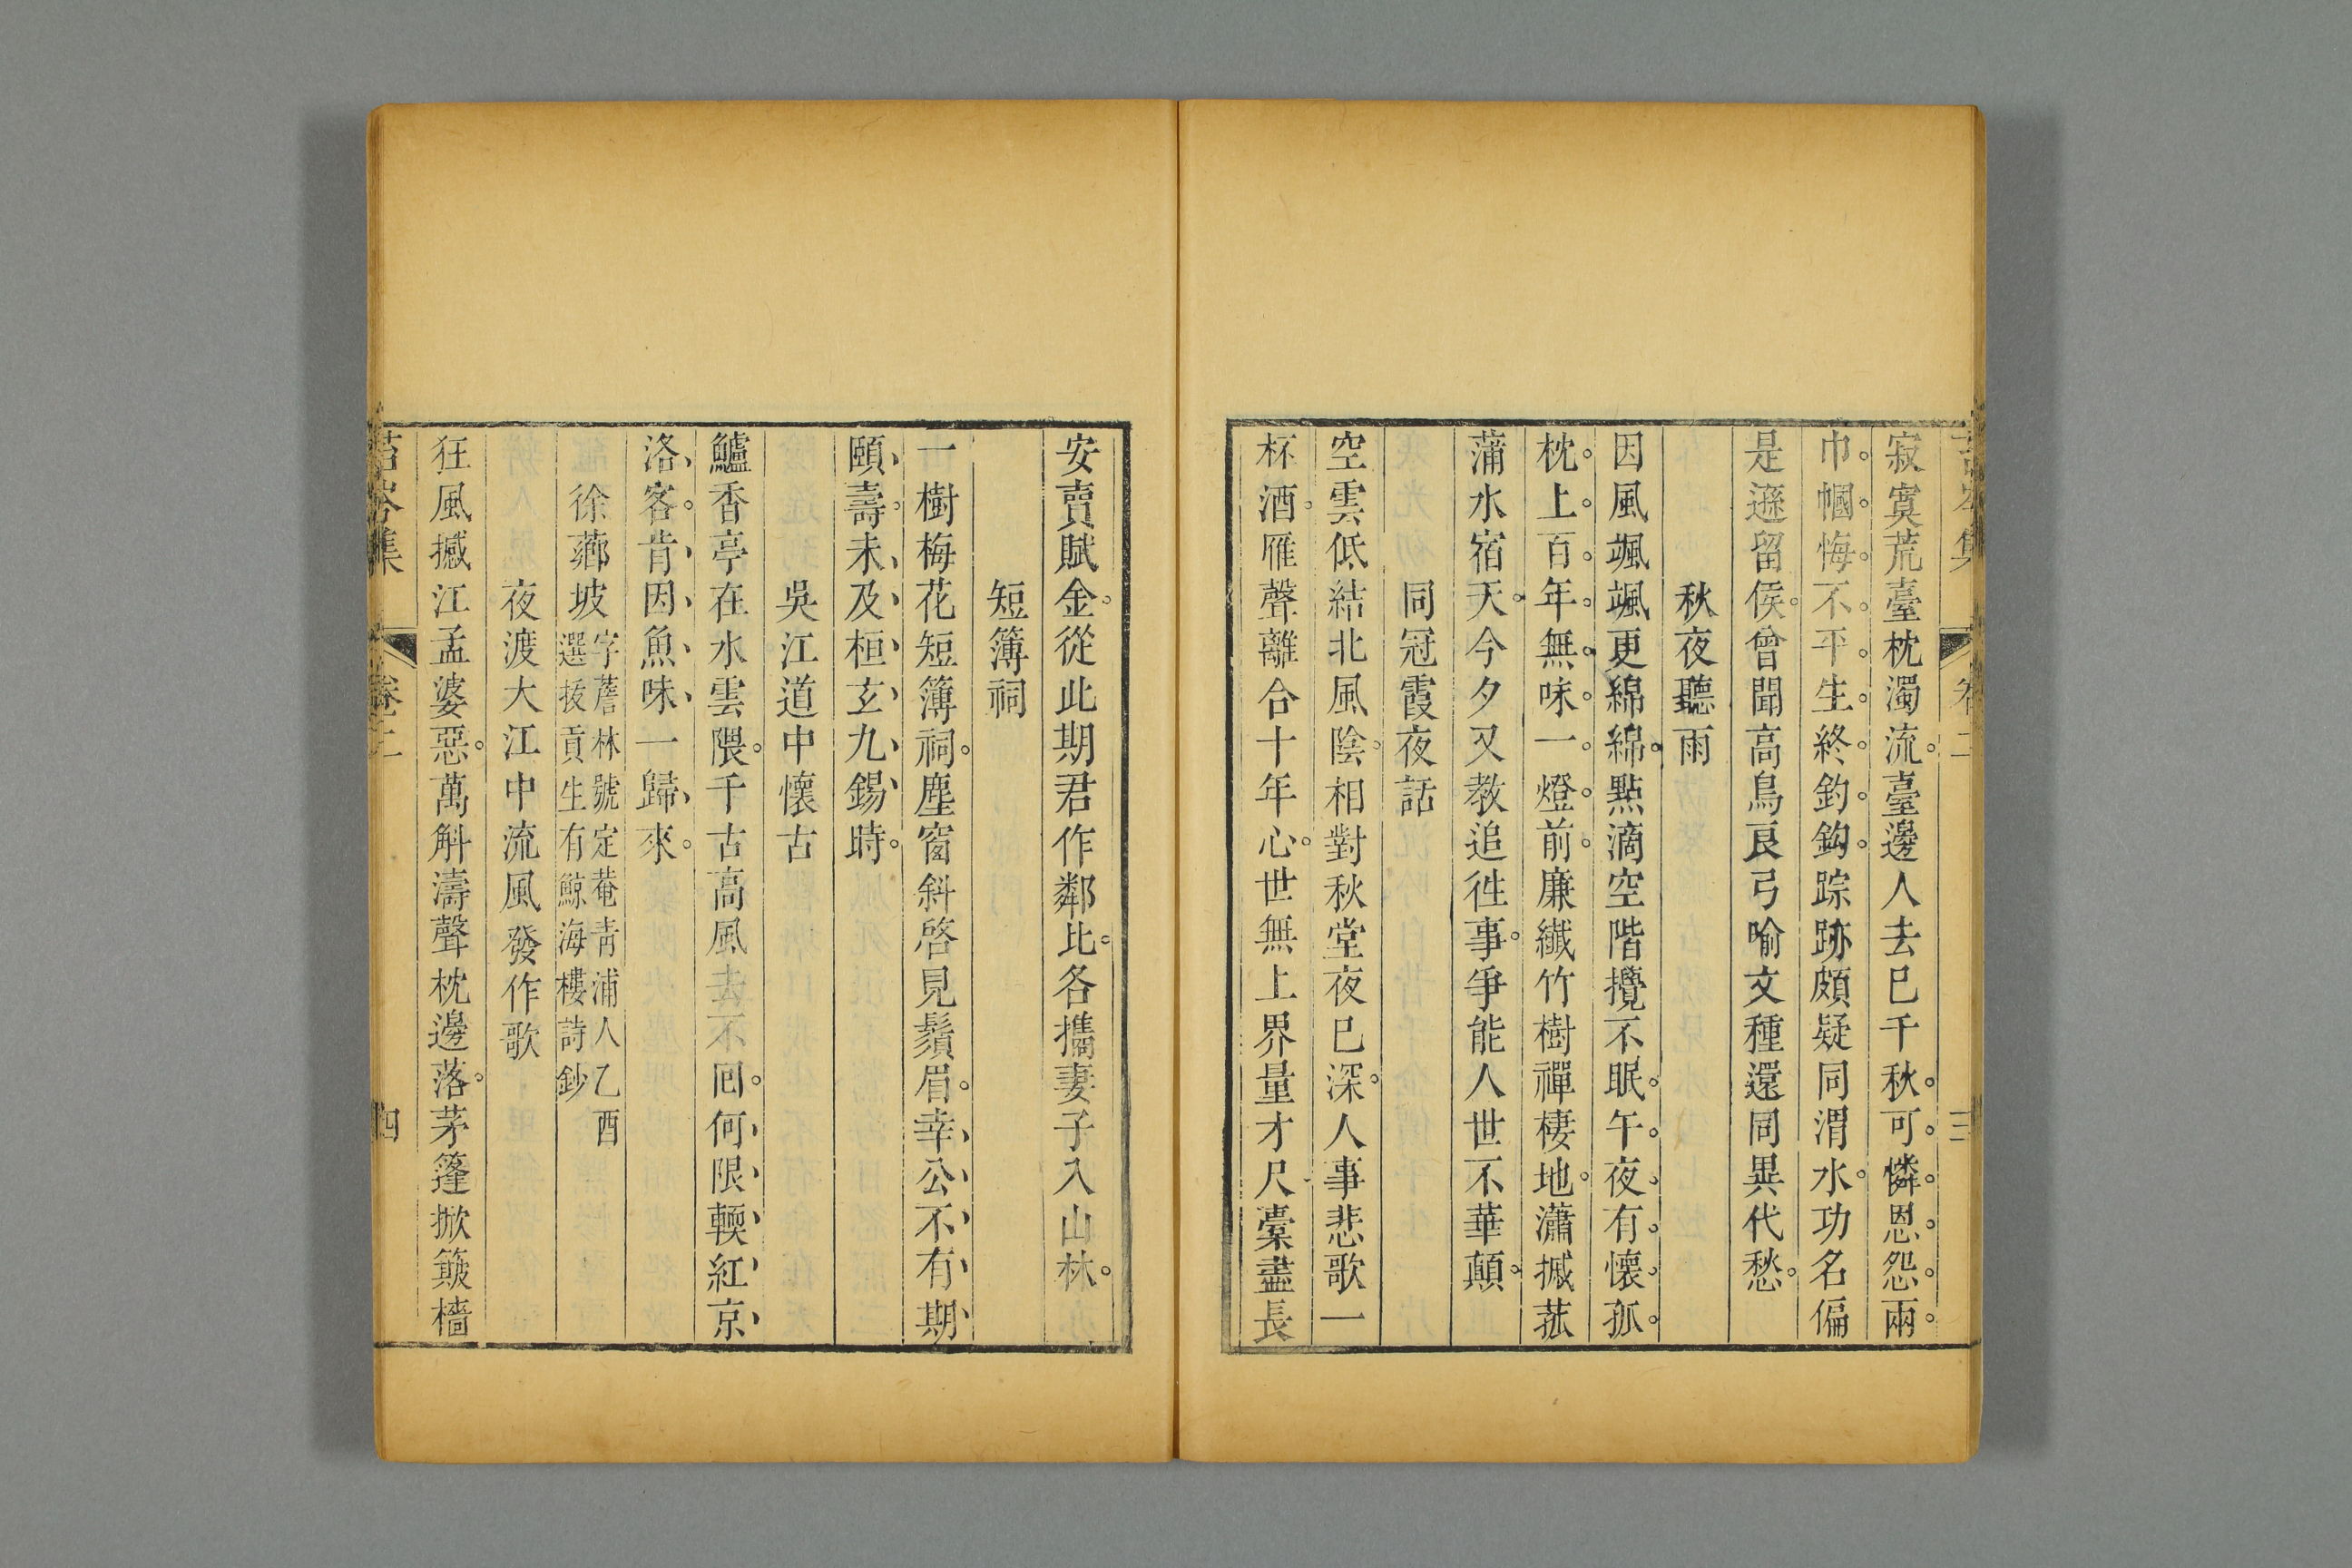 寂寞荒臺枕濁流臺邊人去已千秋可憐恩怨兩
巾幗悔不平生終釣鈎踪跡頗疑同渭水功名偏
是遜留侯曾聞高鳥良弓喻文種還同異代愁
秋夜聽雨
因風颯颯更綿綿點滴空階攪不眠午夜有懷孤
枕上百年無味一燈前廉纖竹樹禪棲地瀟摵菰
蒲水宿天今夕又教追徃事爭能人世不華顛
同冠霞夜話
空雲低結北風陰相對秋堂夜已深人事悲歌一
杯酒雁聲離合十年心世無上界量才尺橐盡長
安賣賦金從此期君作鄰比各攜妻子入山林
短簿祠
一樹梅花短簿祠塵窗斜啓見鬚眉幸公不有期
頤壽未及桓玄九錫時
吳江道中懷古
鱸香亭在水雲隈千古高風去不回何限輭紅京
洛客肯因魚味一歸來
徐薌坡字蔗林號定菴青浦人乙酉選拔貢生有鯨海樓詩鈔
夜渡大江中流風發作歌
狂風撼江孟婆惡萬斛濤聲枕邊落茅篷掀簸檣
苔岑集 卷二 四